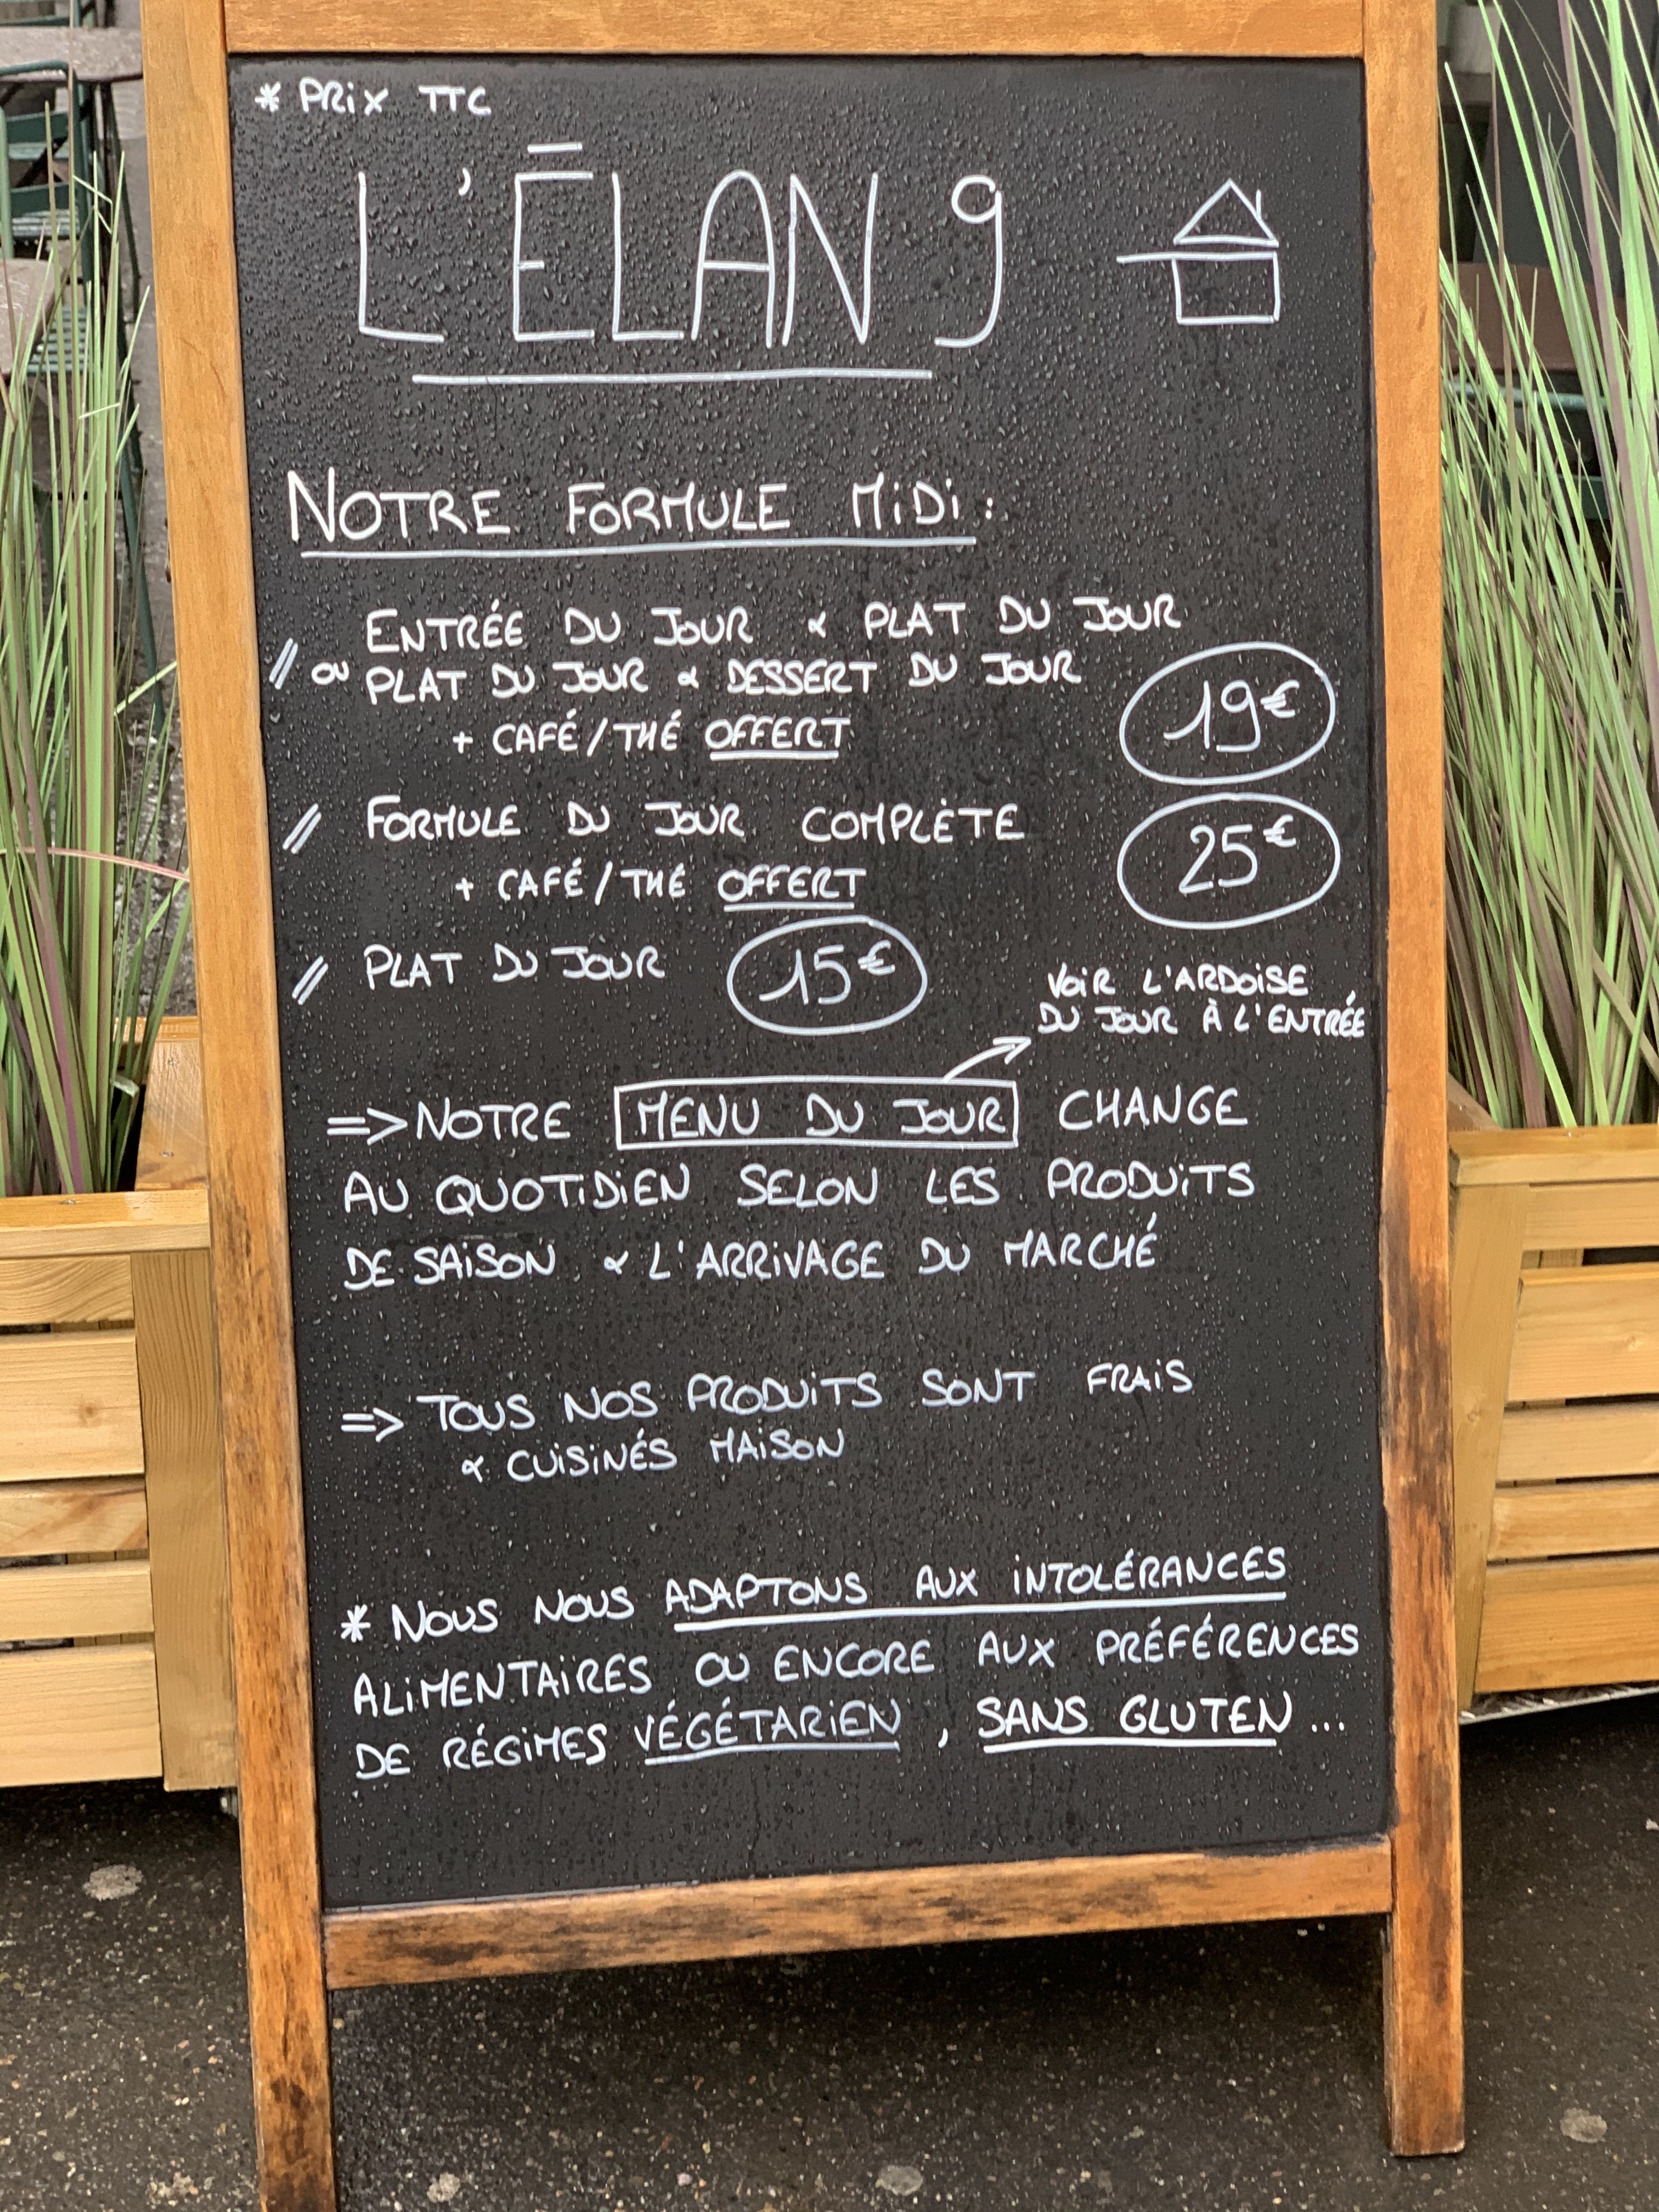 * PRiX TTC
L'ÉLAN 9
NOTRE FORMULE MiDi :
ENTRÉE DU JOUR & PLAT DU JOUR
// OU PLAT DU JOUR & DESSERT DU JOUR
+ CAFÉ/THÉ OFFERT
19€
// FORMULE DU JOUR COMPLÈTE
25€
+ CAFÉ/THÉ OFFERT
// PLAT DU JOUR 15€
VOiR L'ARDOiSE
DU JOUR À L'ENTRÉE
=> NOTRE MENU DU JOUR CHANGE
AU QUOTiDiEN SELON LES PRODUiTS
DE SAiSON & L'ARRiVAGE DU MARCHÉ
=> TOUS NOS PRODUiTS SONT FRAiS
& CUiSiNÉS MAiSON
* NOUS NOUS ADAPTONS AUX iNTOLÉRANCES
ALiMENTAiRES OU ENCORE AUX PRÉFÉRENCES
DE RÉGiMES VÉGÉTARiEN , SANS GLUTEN ...